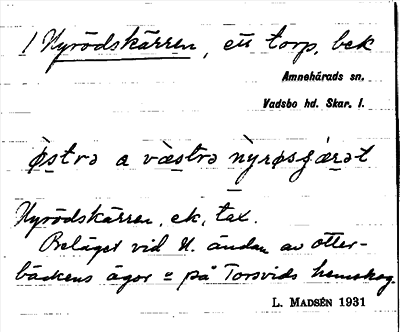 1 Nyrödskärren, ett torp, bek
Amnehärads sn.
Vadsbo hd. Skar. l.
ø̀strə a væ̀strə nỳrøsɟærət
Nyrödskärren, ek, tax.
Beläget vid N. ändan av otter-
bäckens ägor o på Torsvids hemskog.
L. MADSÉN 1931